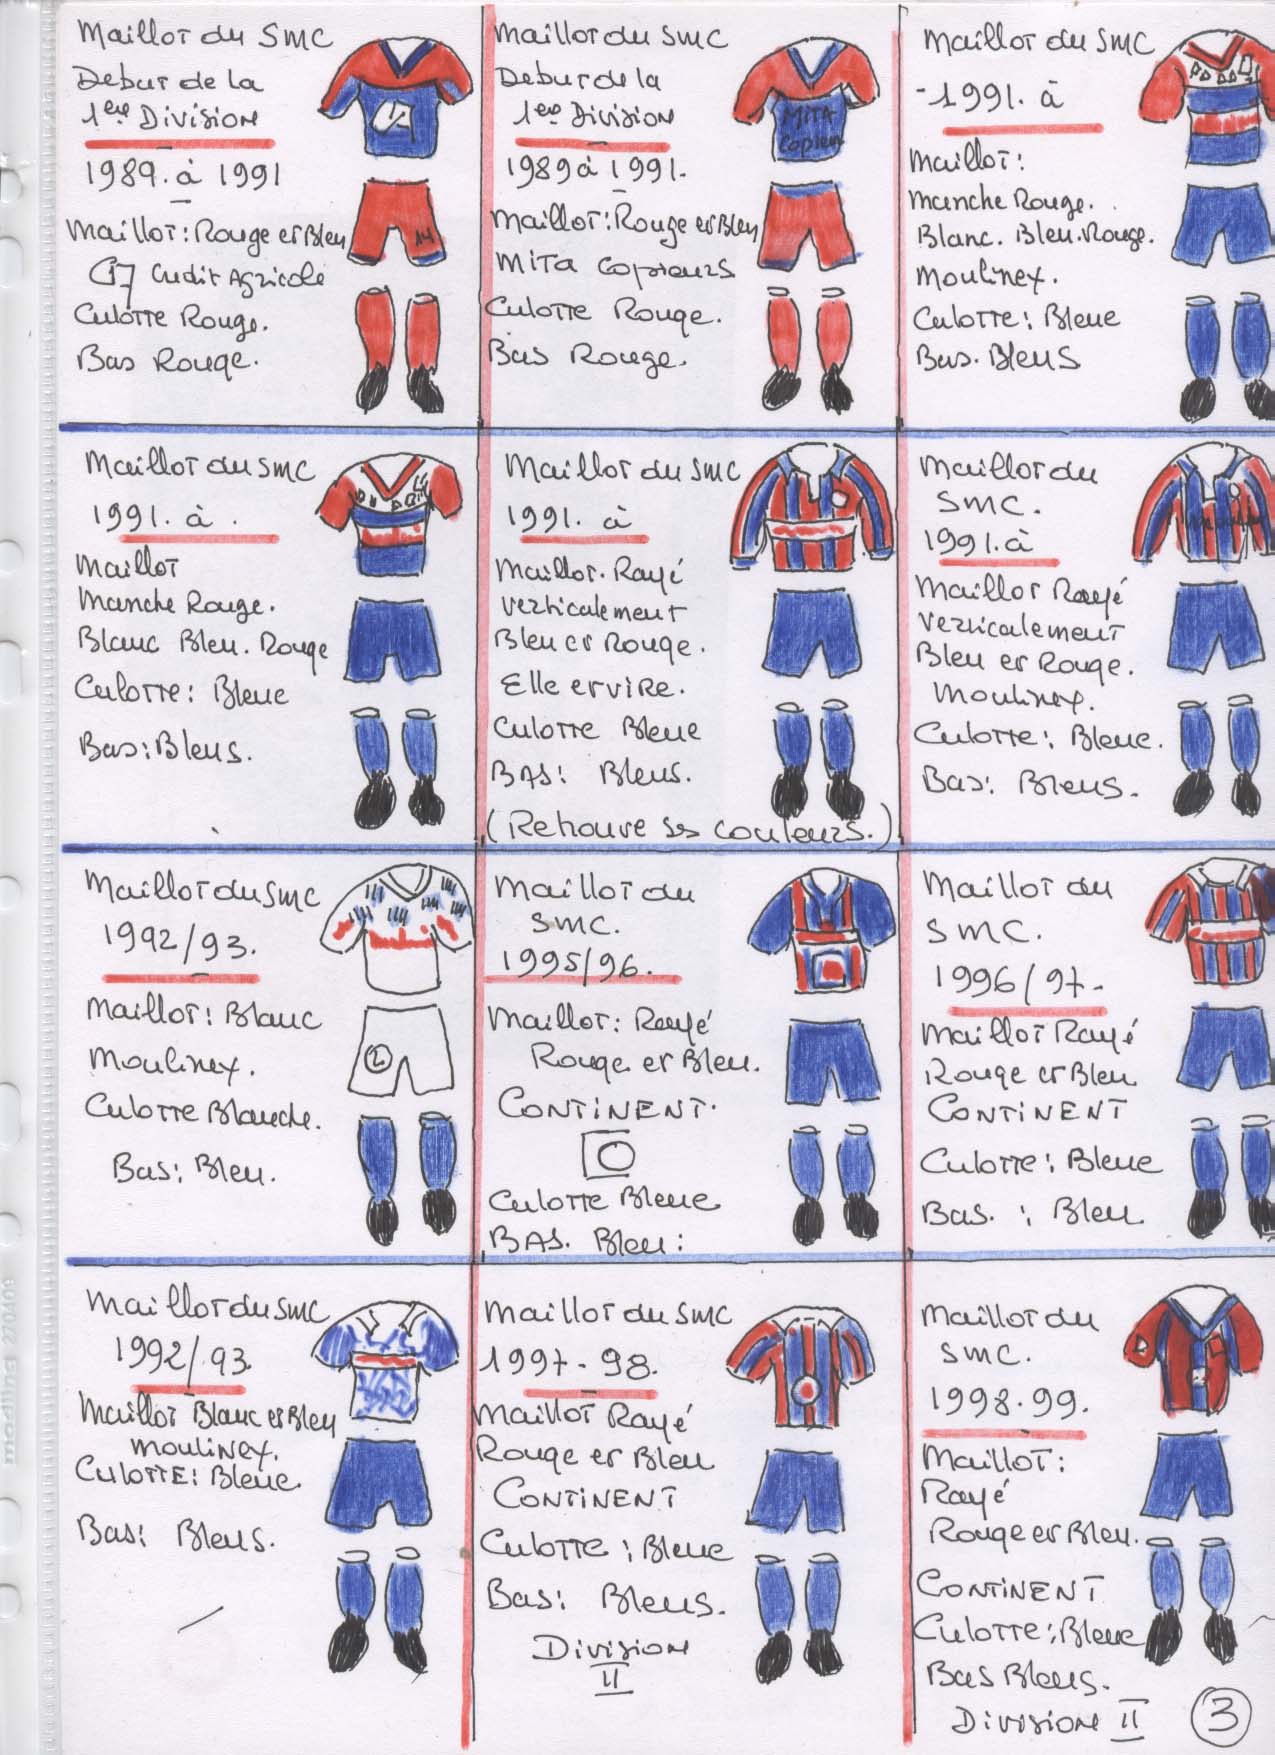 Maillot du SMC
Debut de la
1ere Division
1989. à 1991
Maillot: Rouge et Bleu
Credit Agricole
Culotte Rouge.
Bas Rouge.
14
Maillot du SMC
Debut de la
1ere Division
1989 à 1991.
Maillot: Rouge et Bleu
Mita Copieurs
Culotte Rouge.
Bas Rouge.
MITA
Copieurs
Maillot du SMC
-1991. à
Maillot:
Manche Rouge.
Blanc. Bleu. Rouge.
Moulinex.
Culotte: Bleue
Bas. Bleus
Maillot du SMC
1991. à.
Maillot
Manche Rouge.
Blanc Bleu. Rouge
Culotte: Bleue
Bas: Bleus.
Maillot du SMC
1991. à
Maillot. Rayé
verticalement
Bleu et Rouge.
Elle et vire.
Culotte Bleue
BAS: Bleus.
(Retrouve ses couleurs.)
Maillot du
SMC.
1991. à
Maillot Rayé
verticalement
Bleu et Rouge.
Moulinex.
Culotte: Bleue.
Bas: Bleus.
Maillot du SMC
1992/93.
Maillot: Blanc
Moulinex.
Culotte Blanche.
Bas: Bleu.
2
Maillot du
SMC.
1995/96.
Maillot: Rayé
Rouge et Bleu.
CONTINENT.
Culotte Bleue
BAS. Bleu:
Maillot du
SMC.
1996/97-
Maillot Rayé
Rouge et Bleu
CONTINENT
Culotte: Bleue
Bas. : Bleu
Maillot du SMC
1992/.93.
Maillot Blanc et Bleu
Moulinex.
Culotte: Bleue.
Bas: Bleus.
Maillot du SMC
1997-98.
Maillot Rayé
Rouge et Bleu
CONTINENT
Culotte: Bleue
Bas: Bleus.
Division
II
Maillot du
SMC.
1998.99.
Maillot:
Rayé
Rouge et Bleu.
CONTINENT
Culotte: Bleue
Bas Bleus.
Division II
3